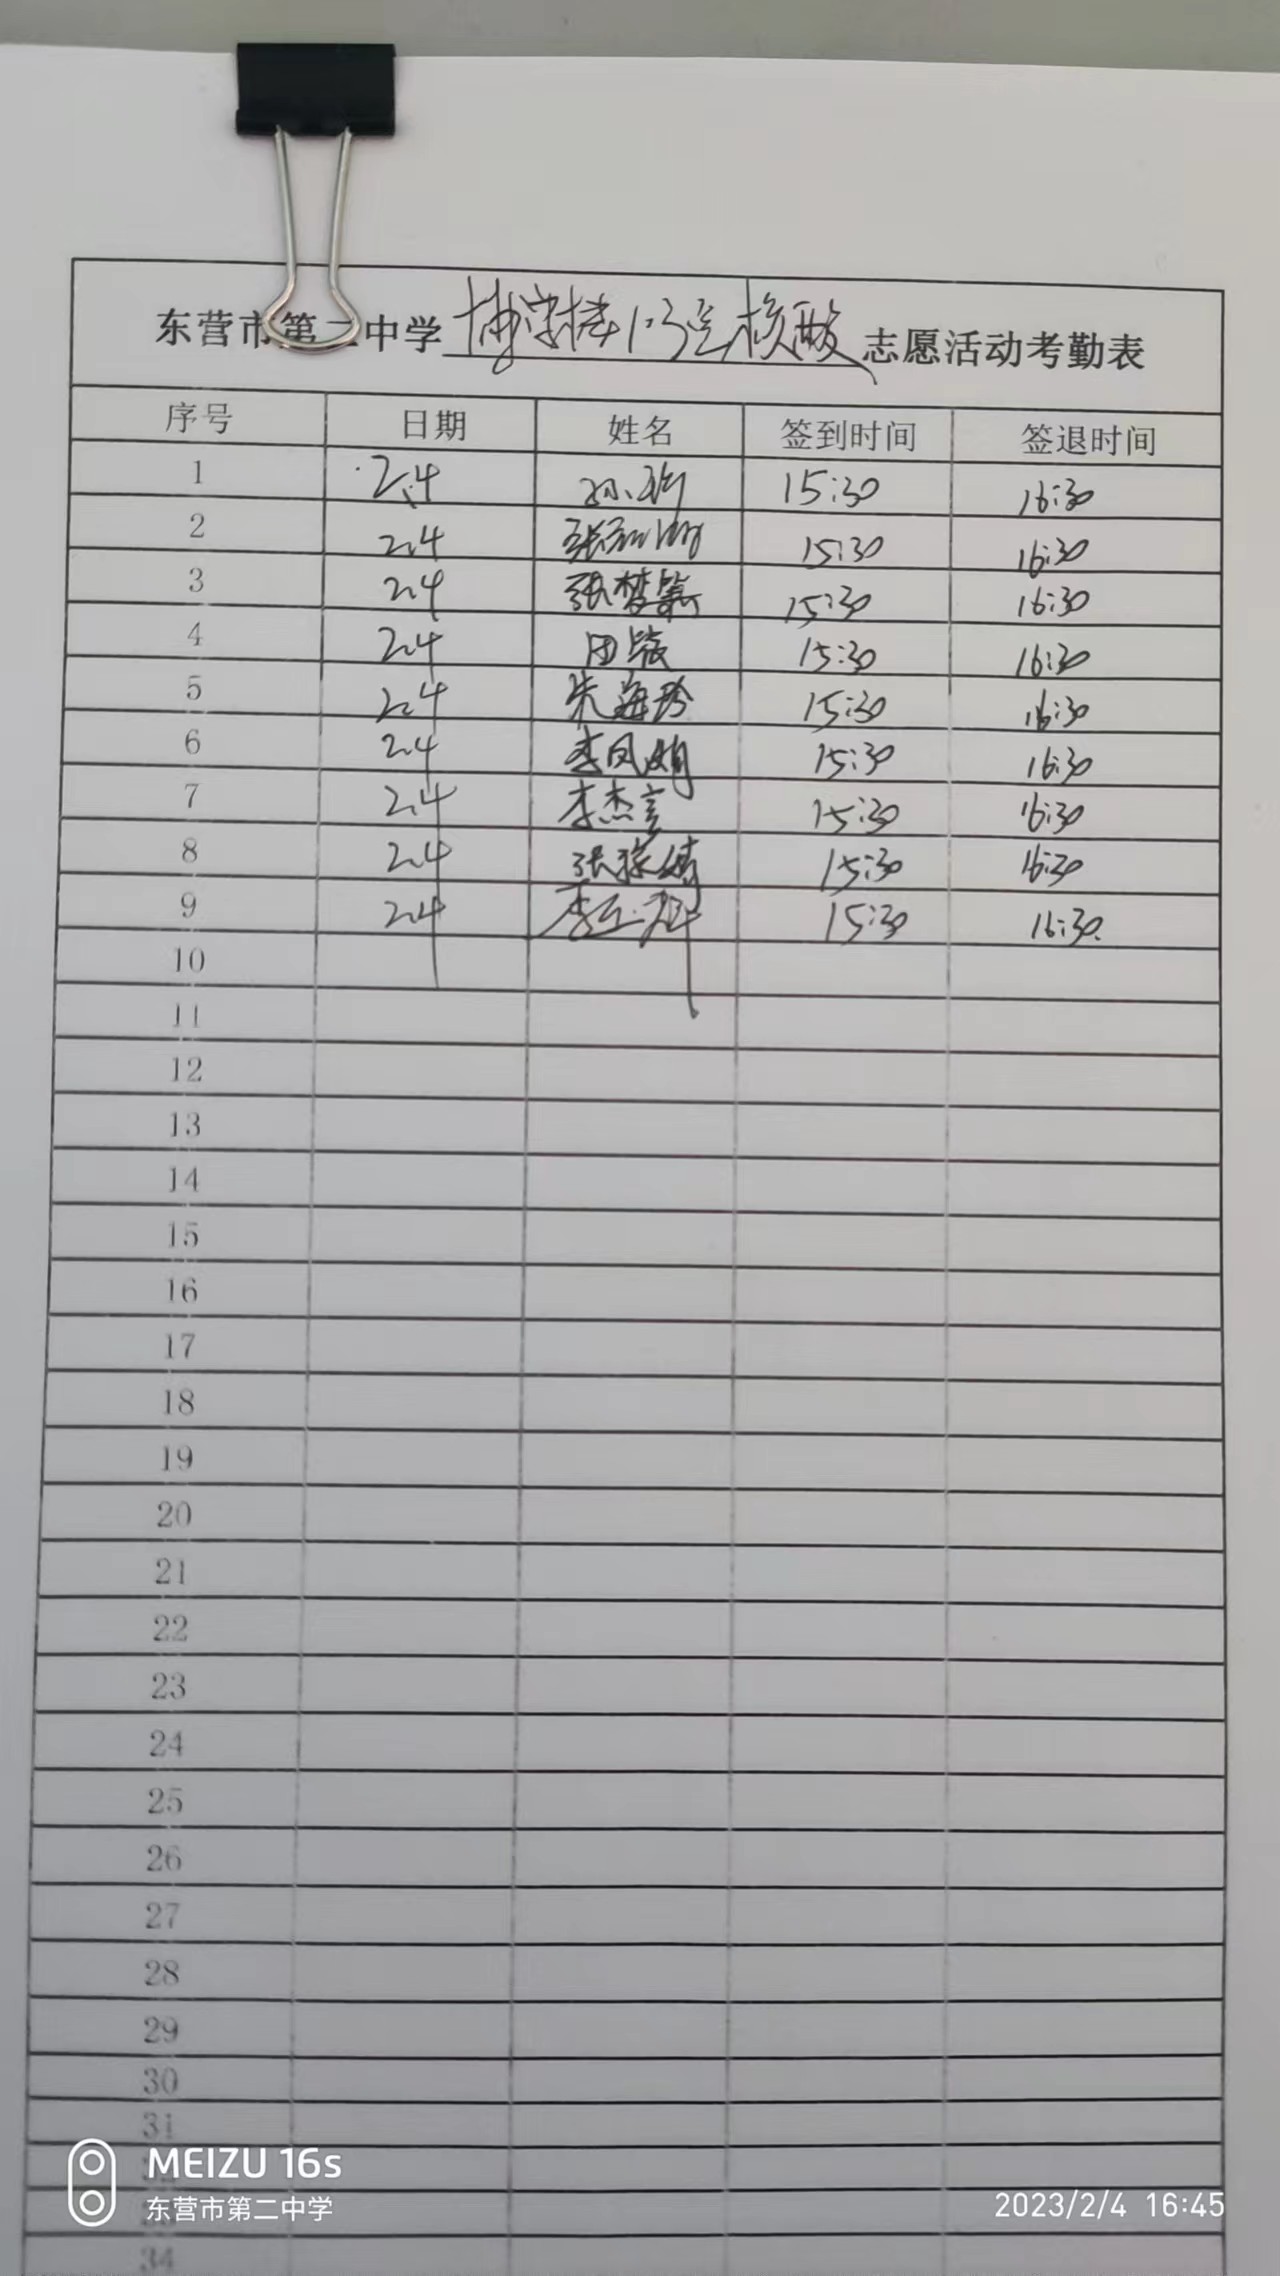 东营市第二中学 博学楼1-3层核酸 志愿活动考勤表
序号 日期 姓名 签到时间 签退时间
1 2.4 15:30 16:30
2 2.4 15:30 16:30
3 2.4 张梦 15:30 16:30
4 2.4 田 15:30 16:30
5 2.4 朱海玲 15:30 16:30
6 2.4 李凤娟 15:30 16:30
7 2.4 李杰 15:30 16:30
8 2.4 张 15:30 16:30
9 2.4 李 15:30 16:30
10
11
12
13
14
15
16
17
18
19
20
21
22
23
24
25
26
27
28
29
30
31
MEIZU 16s
东营市第二中学
2023/2/4 16:45
34